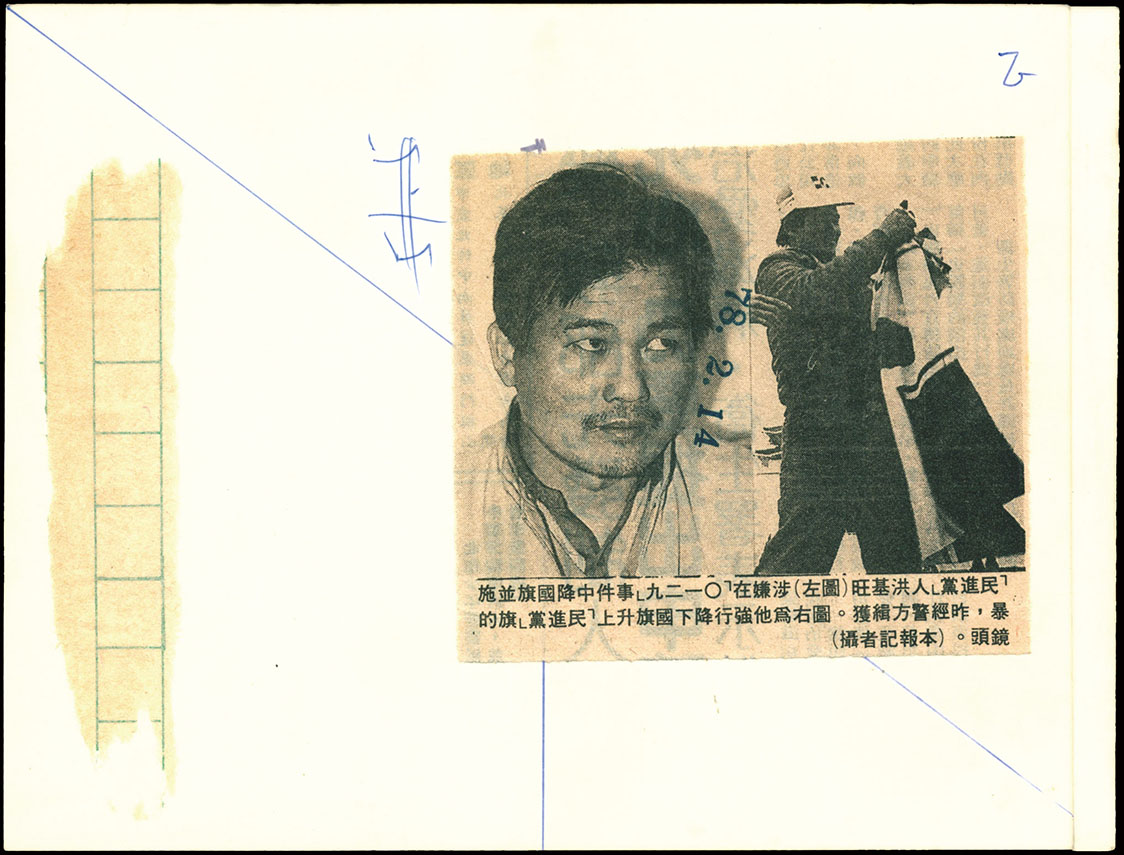 78. 2. 14
「民進黨」人洪基旺(圖左)涉嫌在「〇一二九」事件中降國旗並施
暴,昨經警方緝獲。圖右爲他強行降下國旗升上「民進黨」旗的
鏡頭。(本報記者攝)